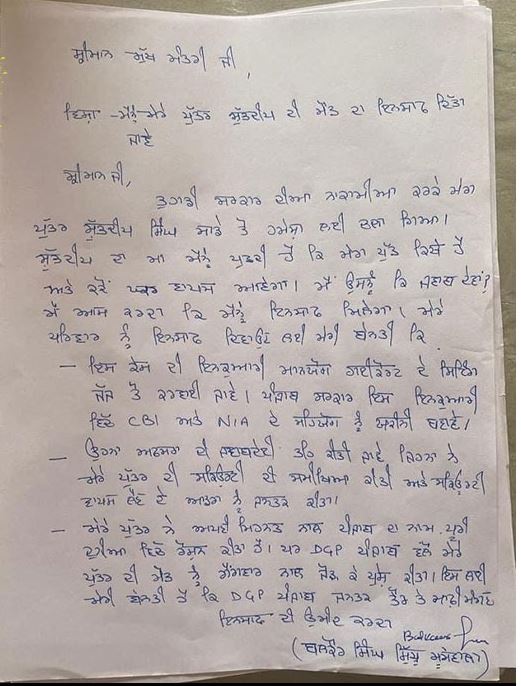 ਸ਼੍ਰੀਮਾਨ ਮੁੱਖ ਮੰਤਰੀ ਜੀ,
ਵਿਸ਼ਾ - ਮੈਨੂੰ ਮੇਰੇ ਪੁੱਤਰ ਸ਼ੁੱਭਦੀਪ ਦੀ ਮੌਤ ਦਾ ਇਨਸਾਫ ਦਿੱਤਾ
ਜਾਵੇ
ਸ਼੍ਰੀਮਾਨ ਜੀ,
ਤੁਹਾਡੀ ਸਰਕਾਰ ਦੀਆ ਨਾਕਾਮੀਆ ਕਰਕੇ ਮੇਰਾ
ਪੁੱਤਰ ਸ਼ੁੱਭਦੀਪ ਸਿੰਘ ਸਾਡੇ ਤੋਂ ਹਮੇਸ਼ਾ ਲਈ ਚਲਾ ਗਿਆ।
ਸ਼ੁੱਭਦੀਪ ਦਾ ਮਾ ਮੈਨੂੰ ਪੁਛਦੀ ਹੈ ਕਿ ਮੇਰਾ ਪੁੱਤ ਕਿਥੇ ਹੈ
ਅਤੇ ਕਦੋਂ ਘਰ ਵਾਪਸ ਆਵੇਗਾ। ਮੈਂ ਉਸਨੂੰ ਕਿ ਜਵਾਬ ਦੇਵਾਂ?
ਮੈਂ ਆਸ ਕਰਦਾ ਕਿ ਮੈਨੂੰ ਇਨਸਾਫ ਮਿਲੇਗਾ। ਮੇਰੇ
ਪਰਿਵਾਰ ਨੂੰ ਇਨਸਾਫ ਦਿਵਾਉਣ ਲਈ ਮੇਰੀ ਬੇਨਤੀ ਕਿ
- ਇਸ ਕੇਸ ਦੀ ਇਨਕੁਆਰੀ ਮਾਨਯੋਗ ਹਾਈਕੋਰਟ ਦੇ ਸਿਟਿੰਗ
ਜੱਜ ਤੋਂ ਕਰਵਾਈ ਜਾਵੇ। ਪੰਜਾਬ ਸਰਕਾਰ ਇਸ ਇਨਕੁਆਰੀ
ਵਿੱਚ CBI ਅਤੇ NIA ਦੇ ਸਹਿਯੋਗ ਨੂੰ ਯਕੀਨੀ ਬਣਾਵੇ।
- ਉਹਨਾ ਅਫਸਰਾ ਦੀ ਜਵਾਬਦੇਹੀ ਤਹਿ ਕੀਤੀ ਜਾਵੇ ਜਿਹਨਾ ਨੇ
ਮੇਰੇ ਪੁੱਤਰ ਦੀ ਸਕਿਉਰਟੀ ਦੀ ਸਮੀਖਿਆ ਕੀਤੀ ਅਤੇ ਸਕਿਉਰਟੀ
ਵਾਪਸ ਲੈਣ ਦੇ ਆਡਰਾ ਨੂੰ ਜਨਤਕ ਕੀਤਾ।
- ਮੇਰੇ ਪੁੱਤਰ ਨੇ ਆਪਣੀ ਮਿਹਨਤ ਨਾਲ ਪੰਜਾਬ ਦਾ ਨਾਮ ਪੂਰੀ
ਦੁਨੀਆ ਵਿੱਚ ਰੌਸ਼ਨ ਕੀਤਾ ਹੈ। ਪਰ DGP ਪੰਜਾਬ ਵਲੋਂ ਮੇਰੇ
ਪੁੱਤਰ ਦੀ ਮੌਤ ਨੂੰ ਗੈਂਗਵਾਰ ਨਾਲ ਜੋੜ ਕੇ ਪੇਸ਼ ਕੀਤਾ। ਇਸ ਲਈ
ਮੇਰੀ ਬੇਨਤੀ ਹੈ ਕਿ DGP ਪੰਜਾਬ ਜਨਤਕ ਤੌਰ ਤੇ ਮਾਫੀ ਮੰਗਣ
ਇਨਸਾਫ ਦੀ ਉਮੀਦ ਕਰਦਾ
Balkaur
(ਬਲਕੌਰ ਸਿੰਘ ਸਿੱਧੂ ਮੂਸੇਵਾਲਾ)